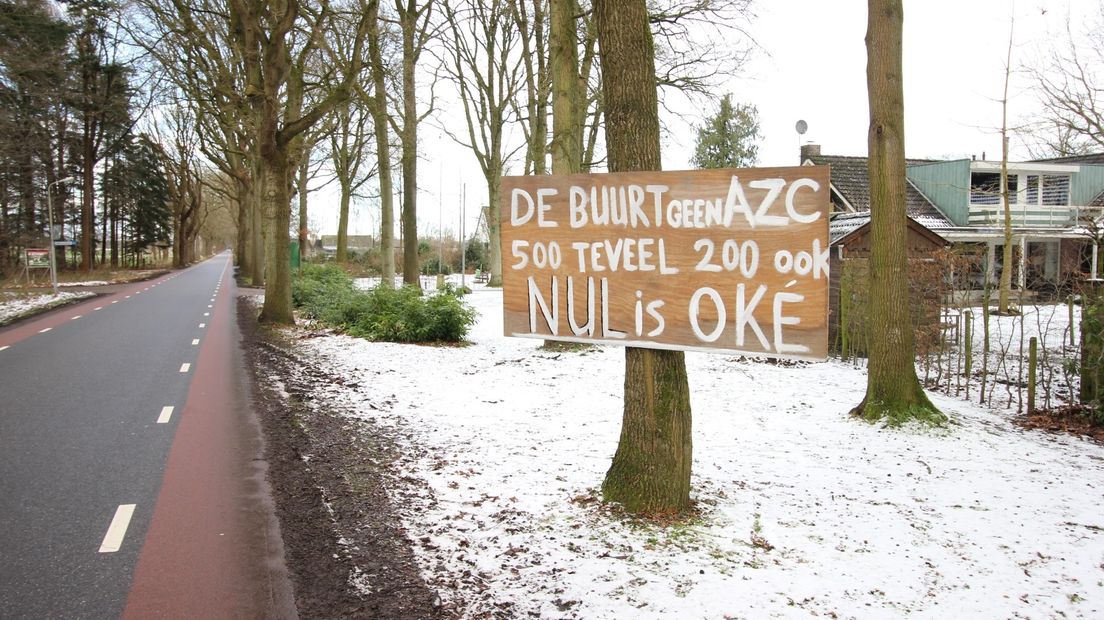 DE BUURT GEEN AZC
500 TEVEEL 200 ooK
NUL is OKÉ